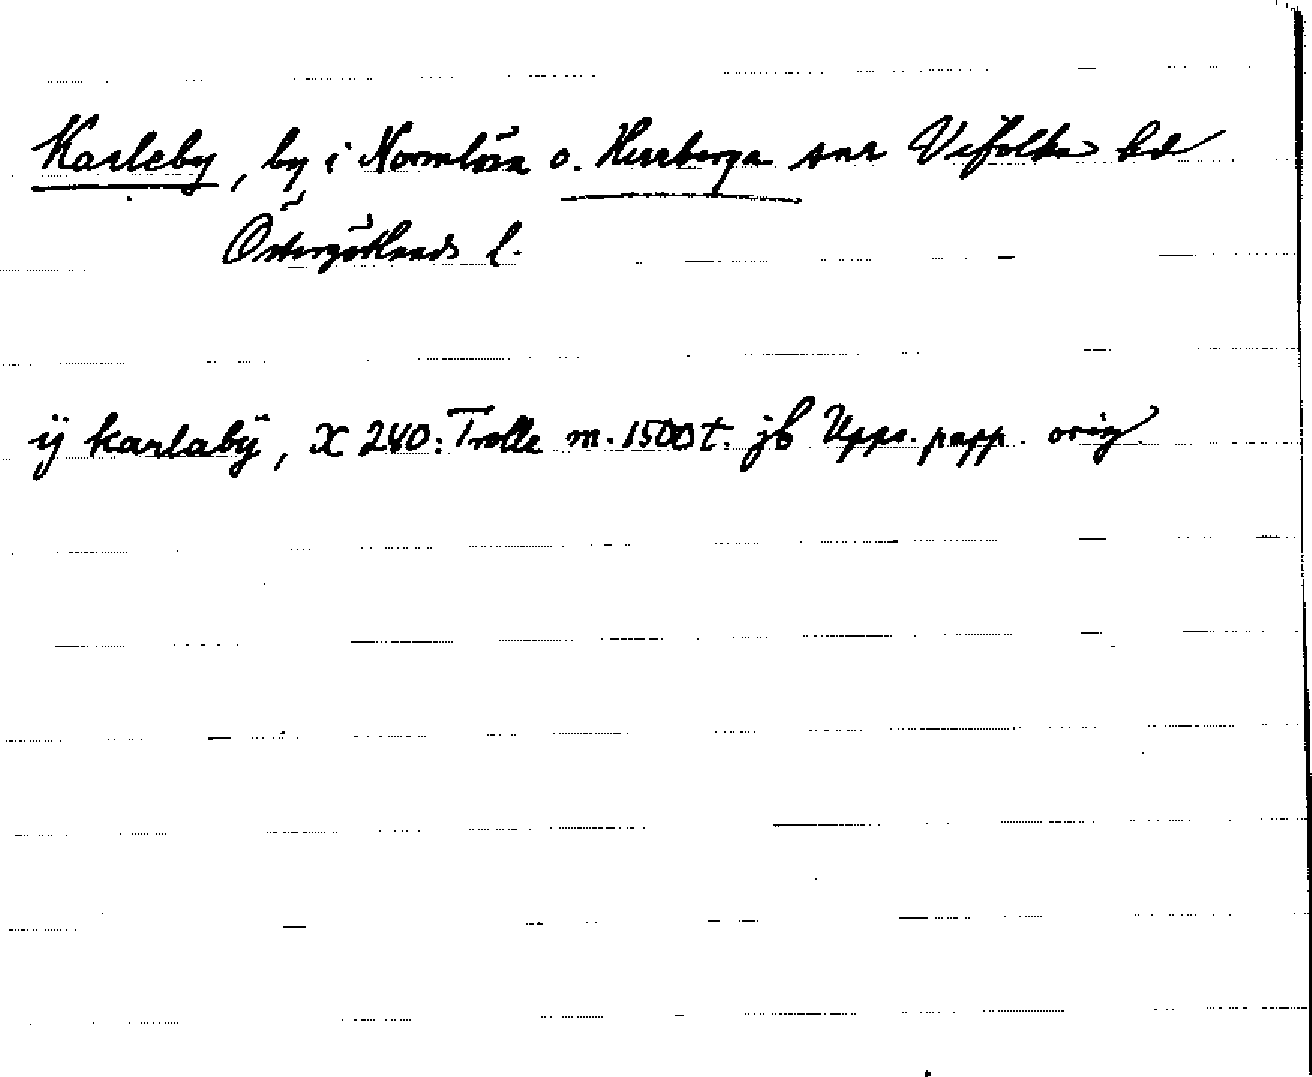 Karleby, by i Normlösa o. Herrberga snr Vifolka hd
Östergötlands l.
ij karlabÿ, X 240: Trolle m. 1500 t. jb Upps. papp. orig.